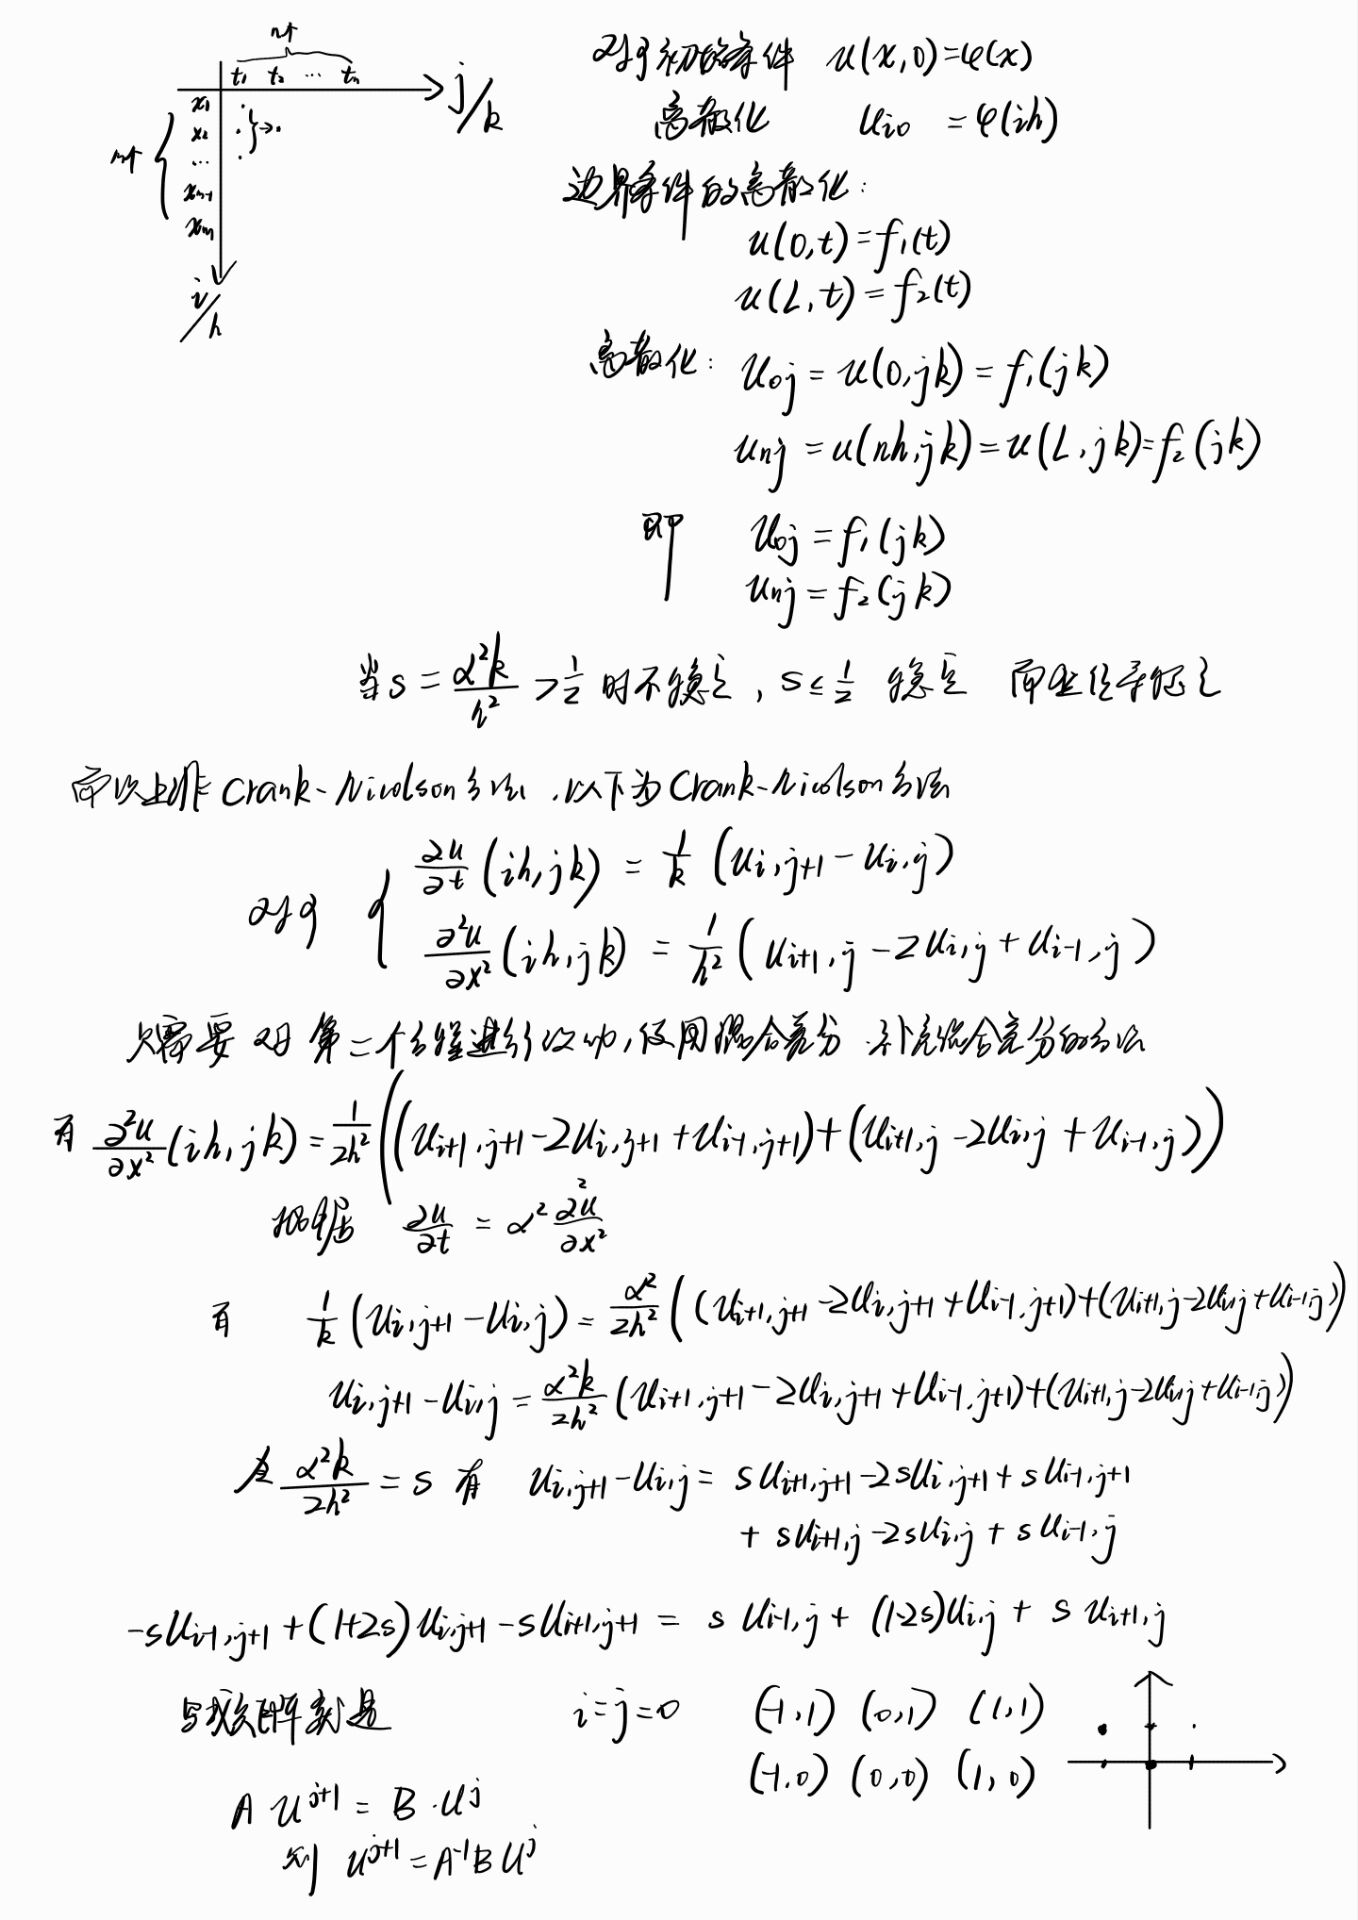 n个
t₁ t₂ … tₙ
j/k
x₁
x₂
…
xₘ₋₁
xₘ
m个
i/h
对于初始条件 u(x,0)=φ(x)
离散化 uᵢ₀ = φ(ih)
边界条件的离散化:
u(0,t)=f₁(t)
u(L,t)=f₂(t)
离散化: u₀ⱼ = u(0,jk) = f₁(jk)
uₙⱼ = u(nh,jk) = u(L,jk) = f₂(jk)
即 u₀ⱼ = f₁(jk)
uₙⱼ = f₂(jk)
当 s = α²k/h² > 1/2 时不稳定, s ≤ 1/2 稳定 而
而以上非 Crank-Nicolson方法, 以下为 Crank-Nicolson方法
对于 { ∂u/∂t (ih,jk) = 1/k (u_{i,j+1} - u_{i,j})
∂²u/∂x² (ih,jk) = 1/h² (u_{i+1,j} - 2u_{i,j} + u_{i-1,j})
只需要对第二个方程进行改动, 使用耦合差分 补充混合差分的方法
有 ∂²u/∂x² (ih,jk) = 1/2h² ((u_{i+1,j+1} - 2u_{i,j+1} + u_{i-1,j+1}) + (u_{i+1,j} - 2u_{i,j} + u_{i-1,j}))
根据 ∂u/∂t = α² ∂²u/∂x²
有 1/k (u_{i,j+1} - u_{i,j}) = α²/2h² ((u_{i+1,j+1} - 2u_{i,j+1} + u_{i-1,j+1}) + (u_{i+1,j} - 2u_{i,j} + u_{i-1,j}))
u_{i,j+1} - u_{i,j} = α²k/2h² (u_{i+1,j+1} - 2u_{i,j+1} + u_{i-1,j+1}) + (u_{i+1,j} - 2u_{i,j} + u_{i-1,j}))
α²k/2h² = s 有 u_{i,j+1} - u_{i,j} = su_{i+1,j+1} - 2su_{i,j+1} + su_{i-1,j+1}
+ su_{i+1,j} - 2su_{i,j} + su_{i-1,j}
-su_{i-1,j+1} + (1+2s)u_{i,j+1} - su_{i+1,j+1} = su_{i-1,j} + (1-2s)u_{i,j} + su_{i+1,j}
写成矩阵则是 i=j=0 (-1,1) (0,1) (1,1)
(-1,0) (0,0) (1,0)
A u^{j+1} = B·u^j
则 u^{j+1} = A⁻¹B u^j